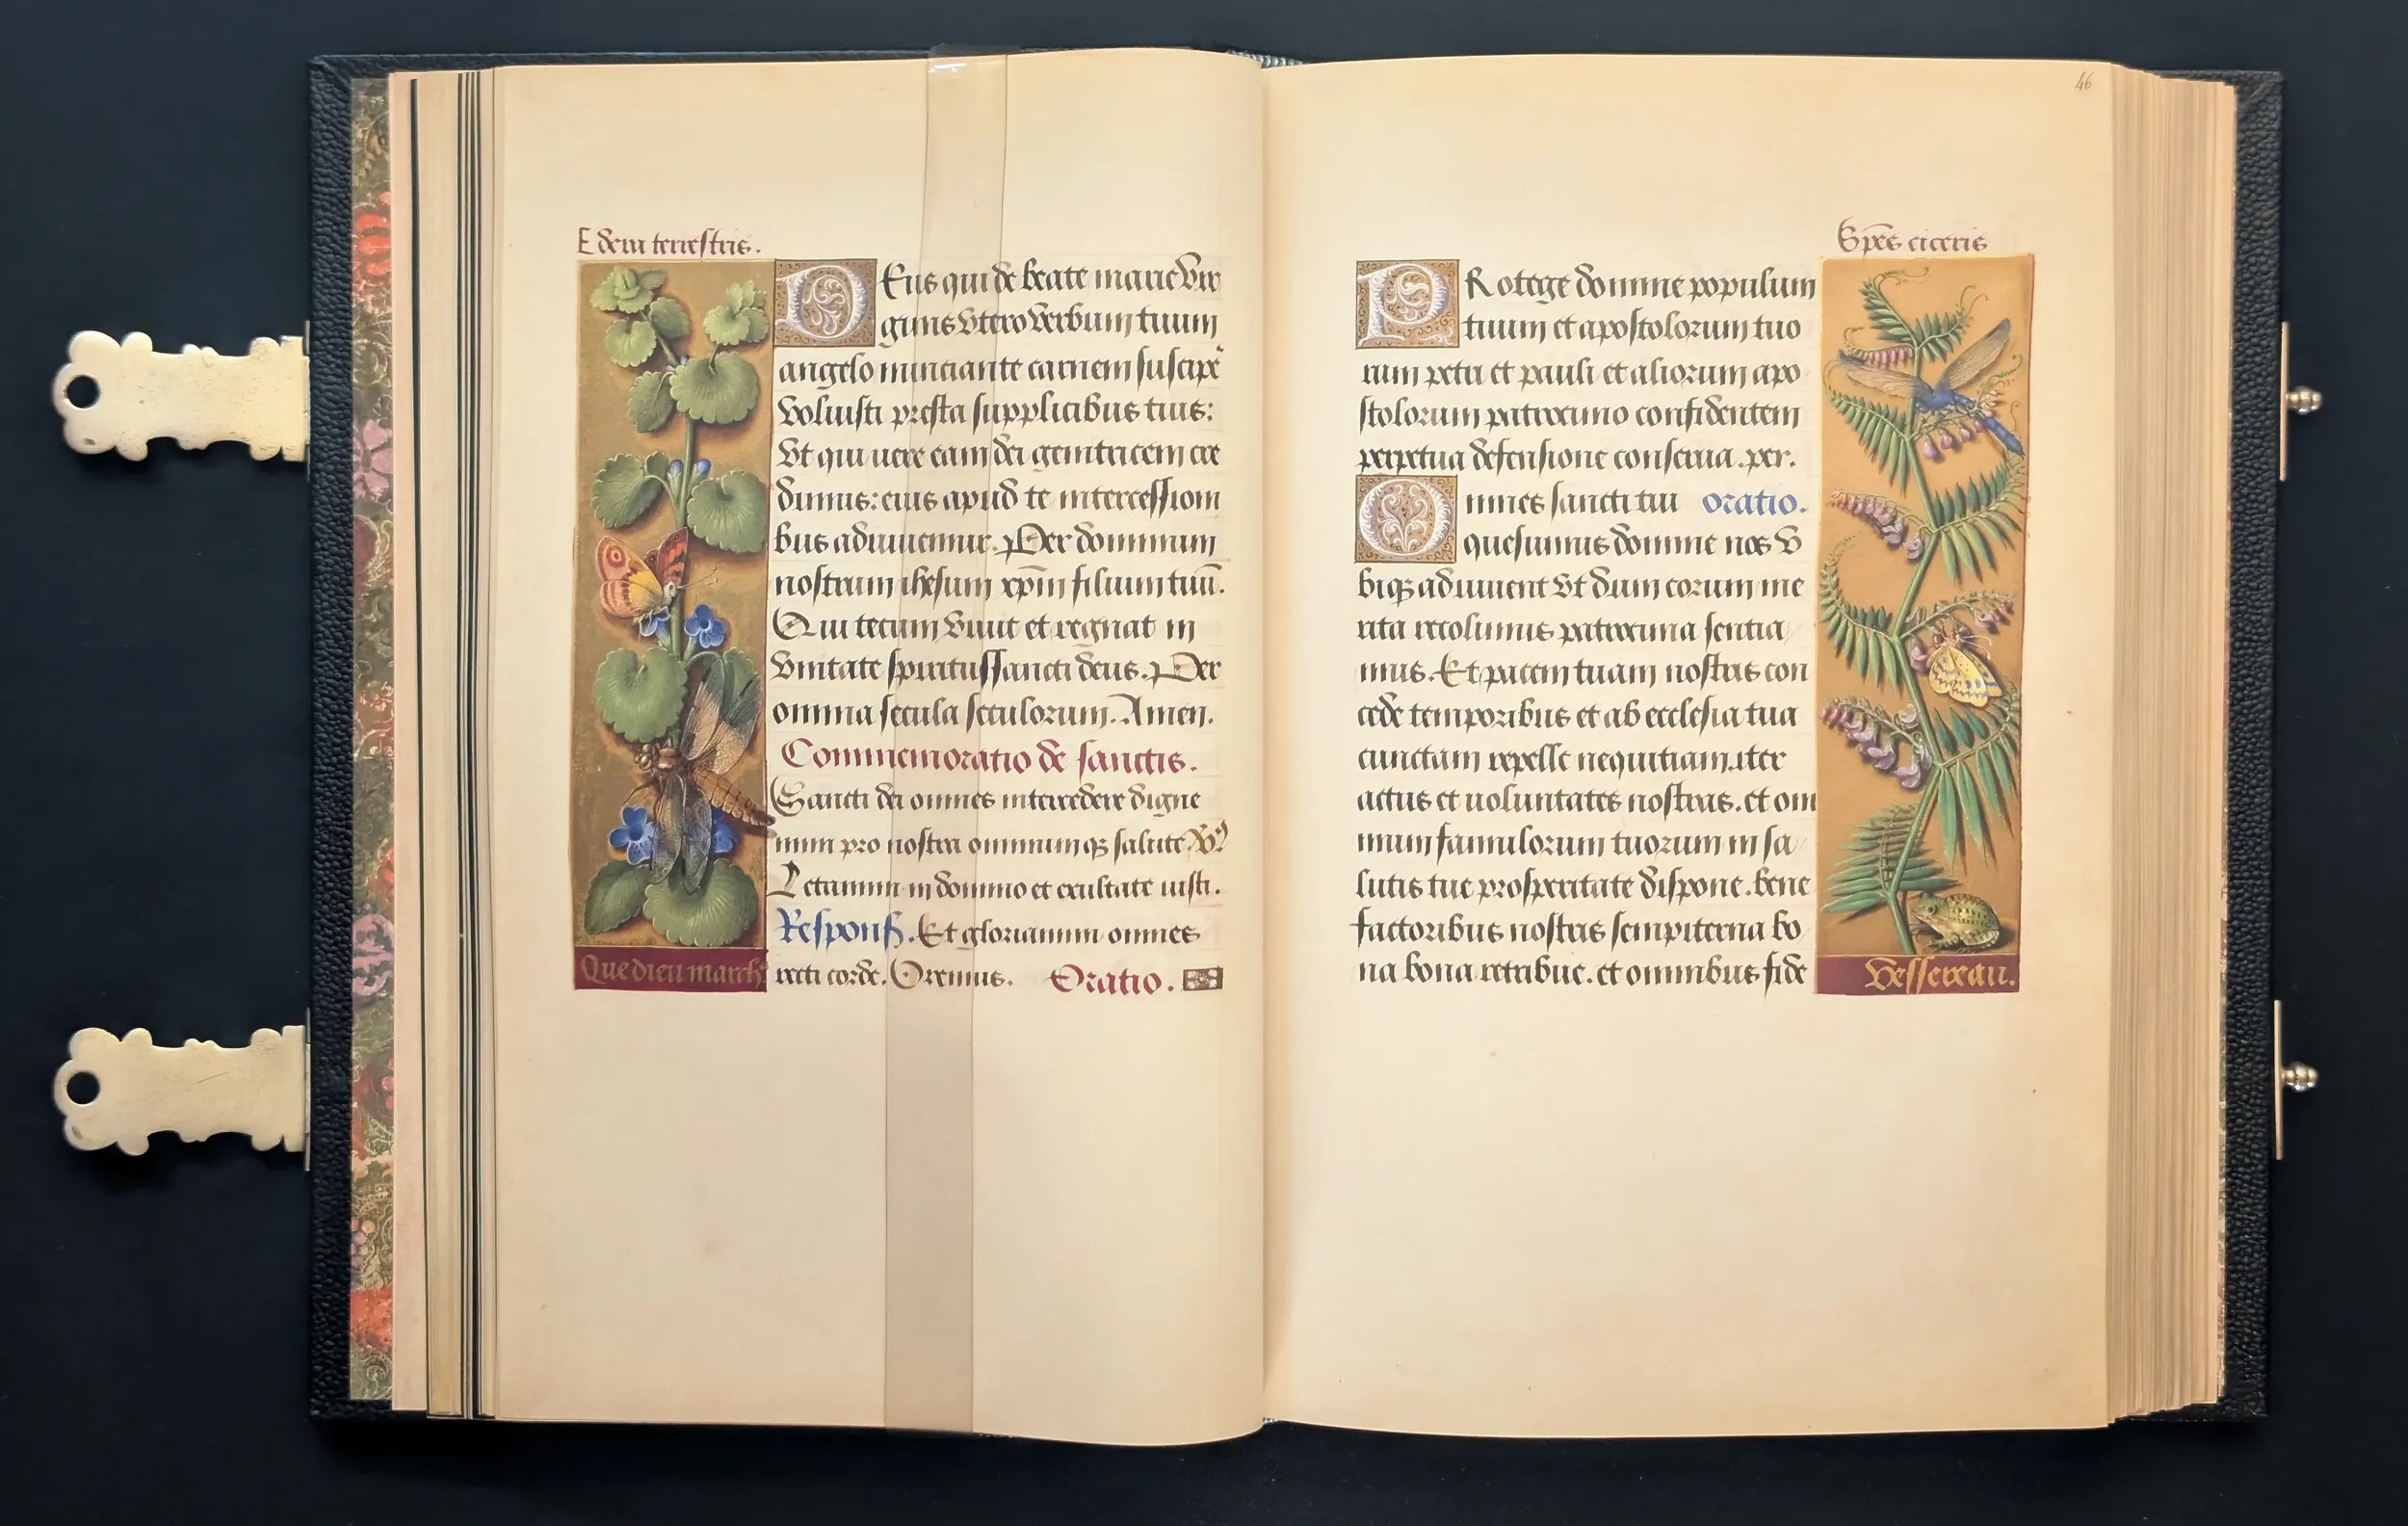 Edera terrestris.
DEus qui de beate marie vir
ginis vtero verbum tuum
angelo nunciante carnem suscipe
voluisti presta supplicibus tuis:
vt qui uere eam dei genitricem cre
dimus: eius apud te intercessioni
bus adiuuemur. Per dominum
nostrum ihesum xp̄m filium tuū.
Qui tecum viuit et regnat in
vnitate spiritus sancti deus. Per
omnia secula seculorum. Amen.
Commemoratio de sanctis.
Sancti dei omnes intercedere digne
mini pro nostra omniumqꝫ salute.
Letamini in domino et exultate iusti.
Respons. Et gloriamini omnes
recti corde. Oremus. Oratio.
Que dieu march
46
Sp̄es ciceris
PRotege domine populum
tuum et apostolorum tuo
rum petri et pauli et aliorum apo
stolorum patrocinio confidentem
perpetua defensione conserua. per.
Omnes sancti tui oratio.
quesumus domine nos v
biqꝫ adiuuent vt dum eorum me
rita recolimus patrocinia sentia
mus. Et pacem tuam nostris con
cede temporibus et ab ecclesia tua
cunctam repelle nequitiam. iter
actus et uoluntates nostras. et om
nium famulorum tuorum in sa
lutis tue prosperitate dispone. bene
factoribus nostris sempiterna bo
na bona retribue. et omnibus fide
Vessereau.